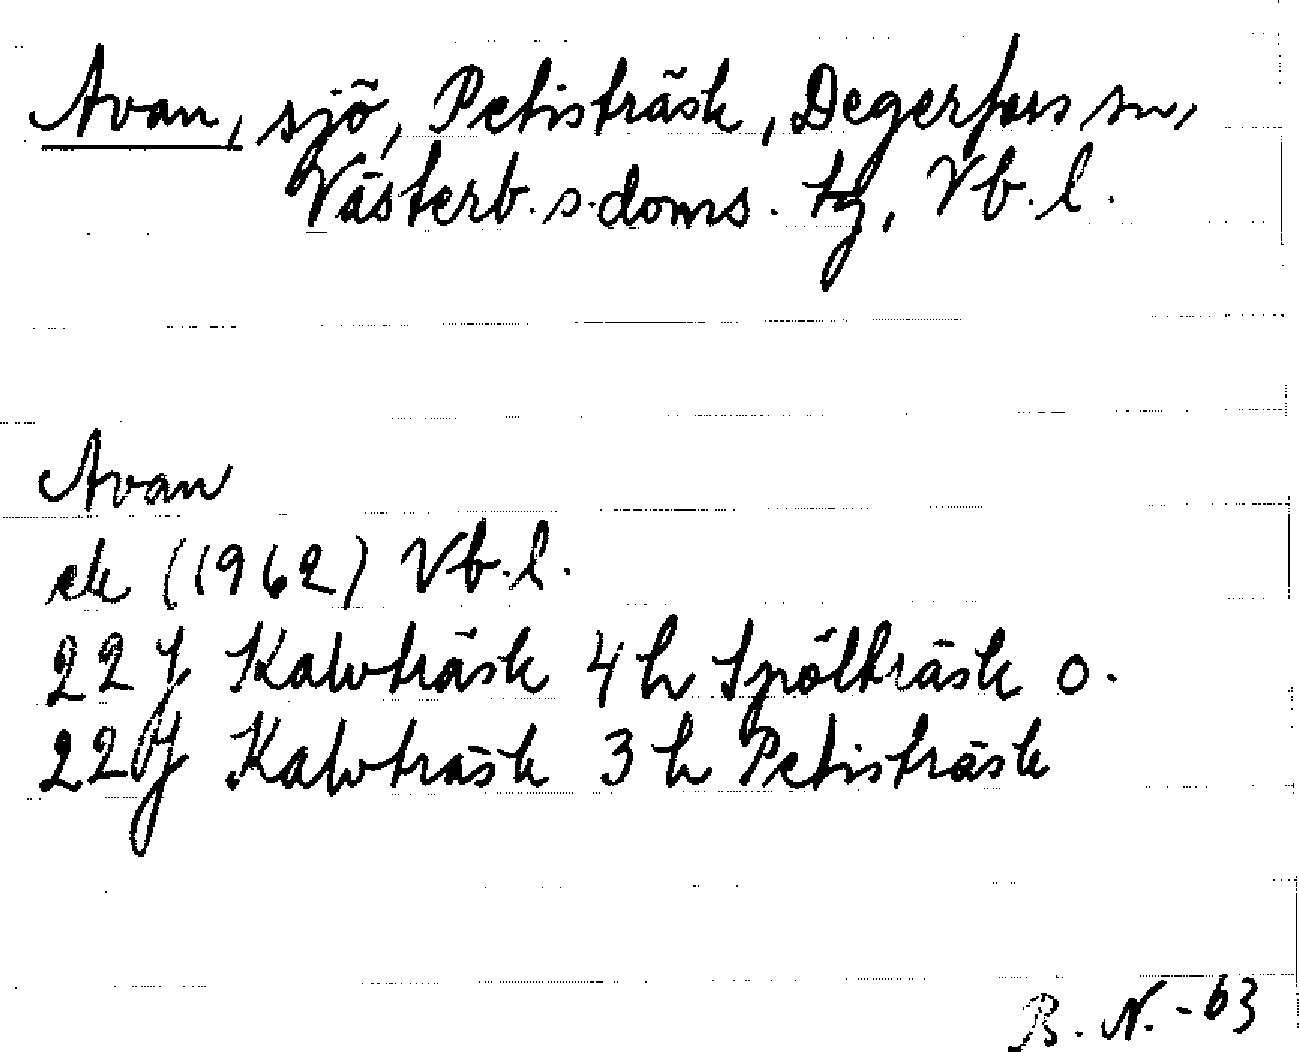 Avan, sjö, Petisträsk, Degerfors sn,
Västerb. s. doms. tg, Vb. l.
Avan
ek (1962) Vb. l.
22 J Kalvträsk 4 h Spölträsk o.
22 J Kalvträsk 3 h Petisträsk
B. N. - 63